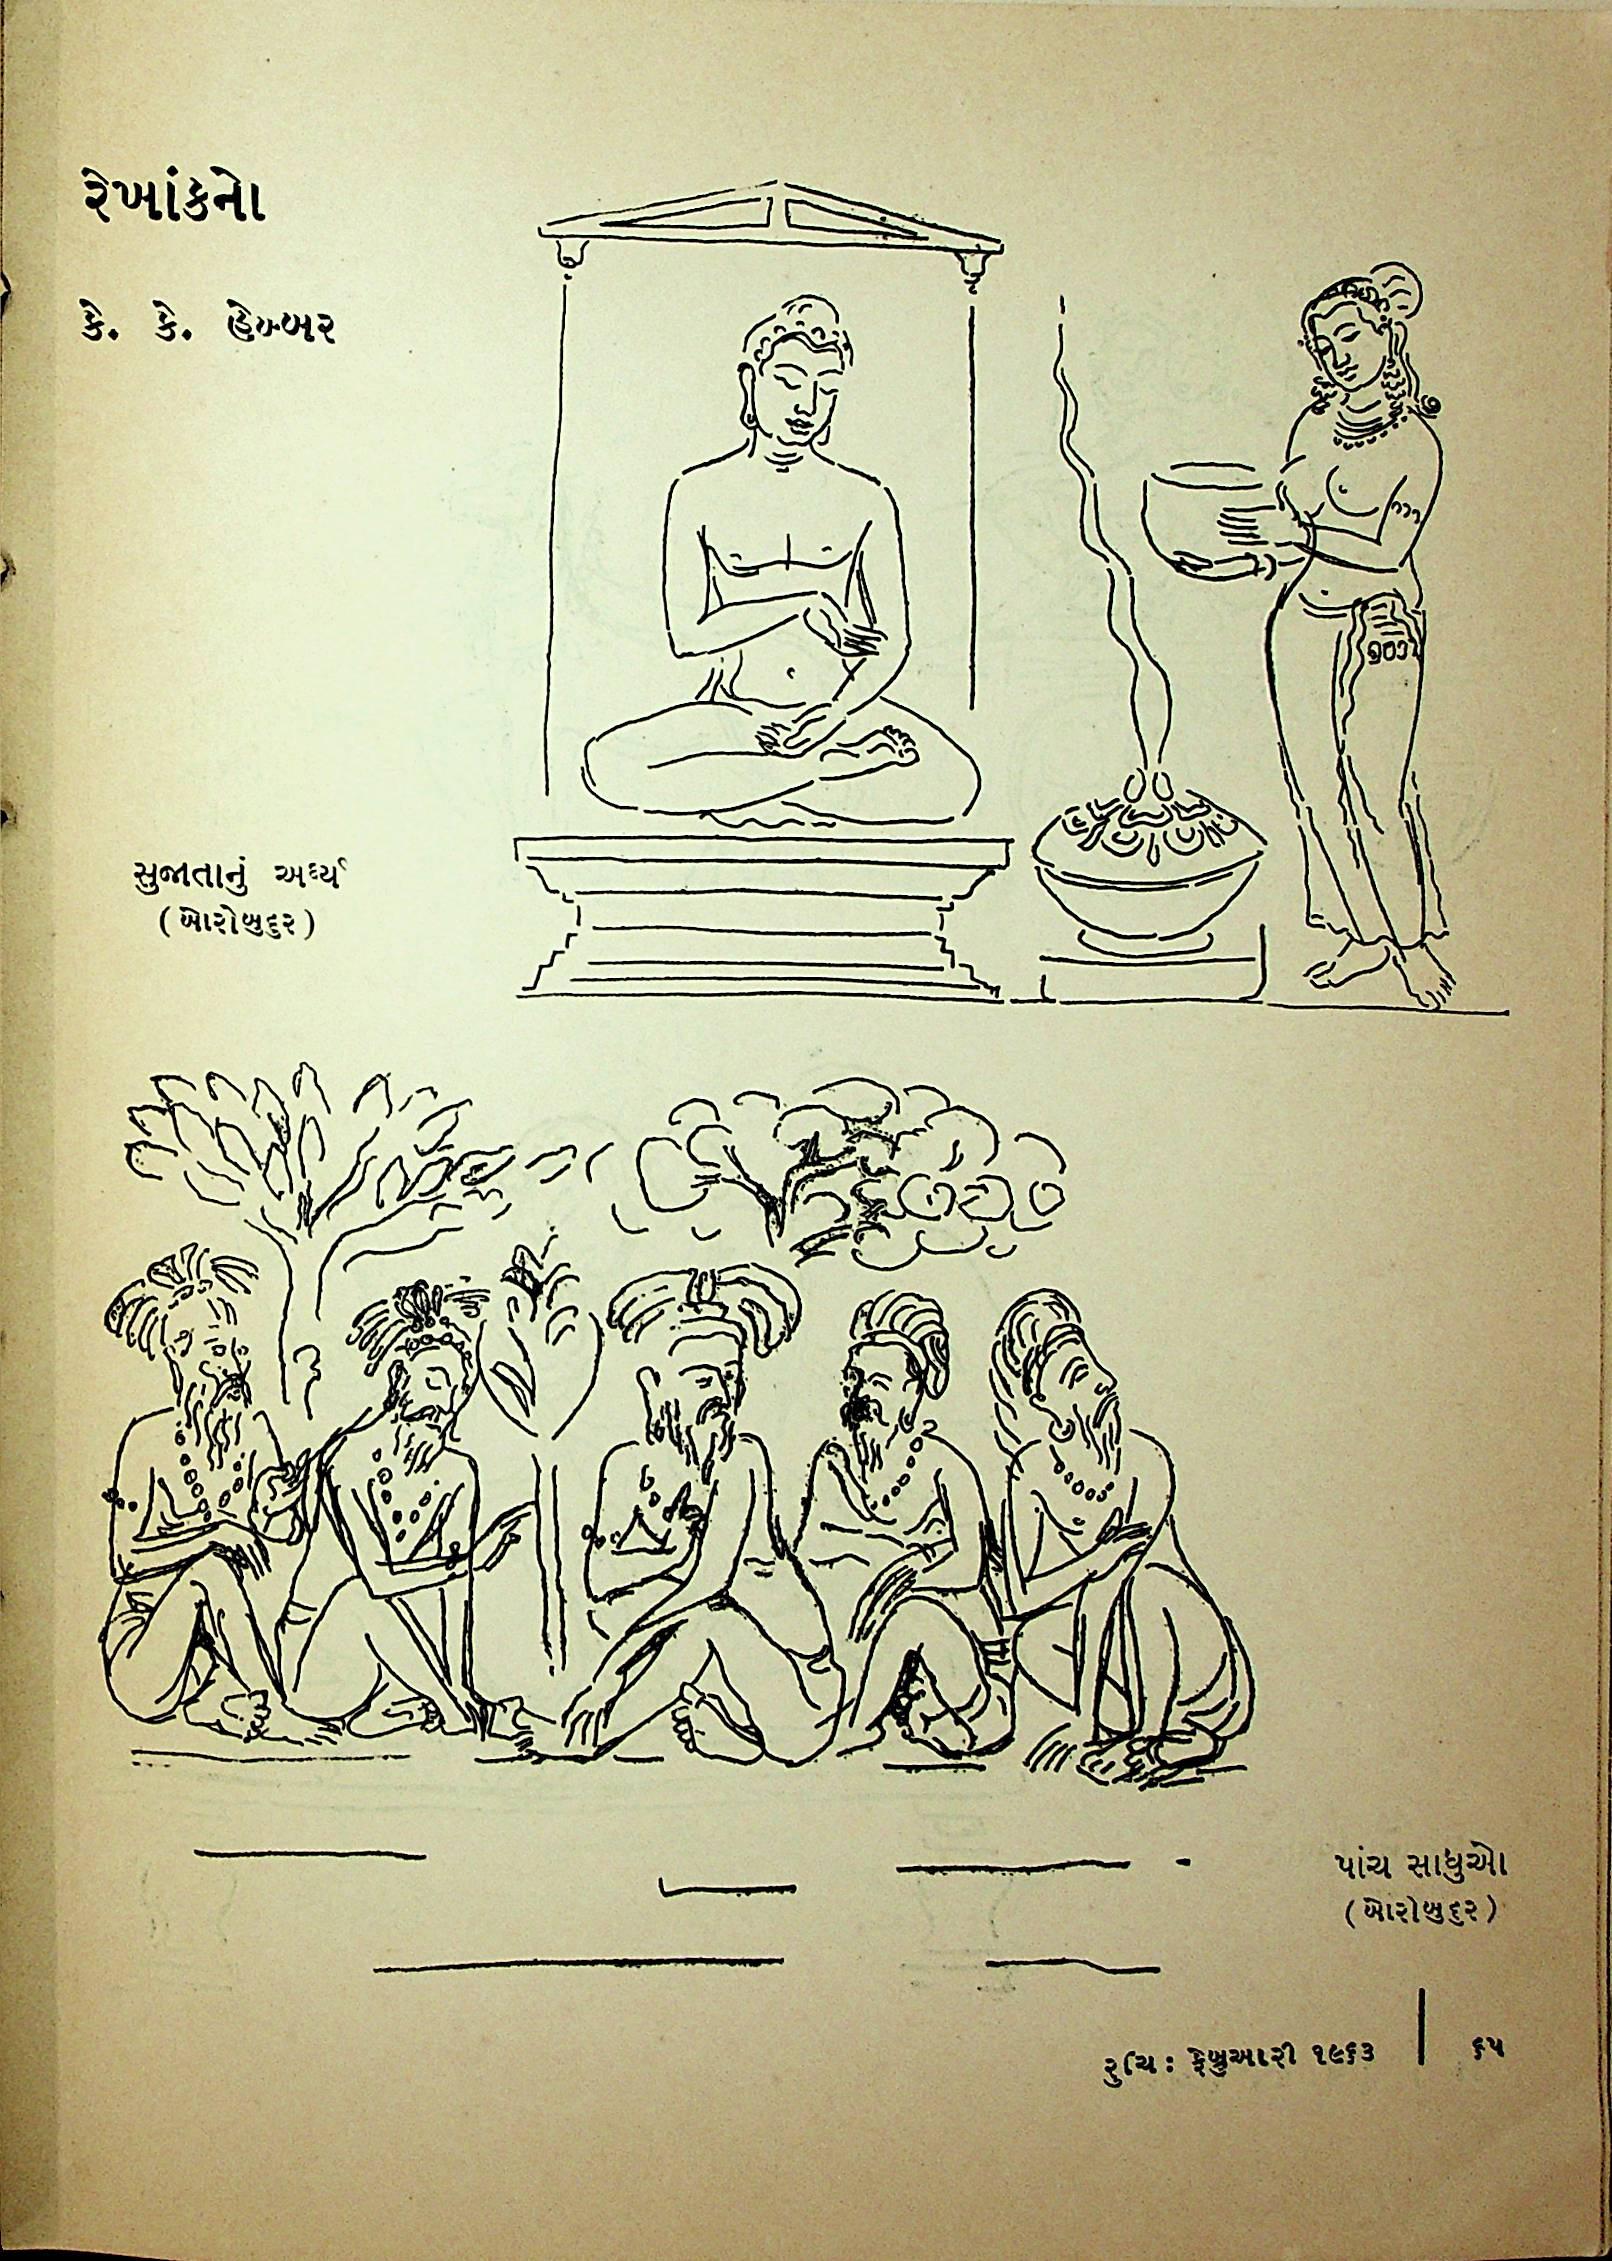 રેખાંકનો
કે. કે. હેબ્બર
સુજાતાનું અર્ઘ્ય
(બોરોબુદુર)
પાંચ સાધુઓ
(બોરોબુદુર)
રુચિ: ફેબ્રુઆરી ૧૯૬૩ | ૬૫